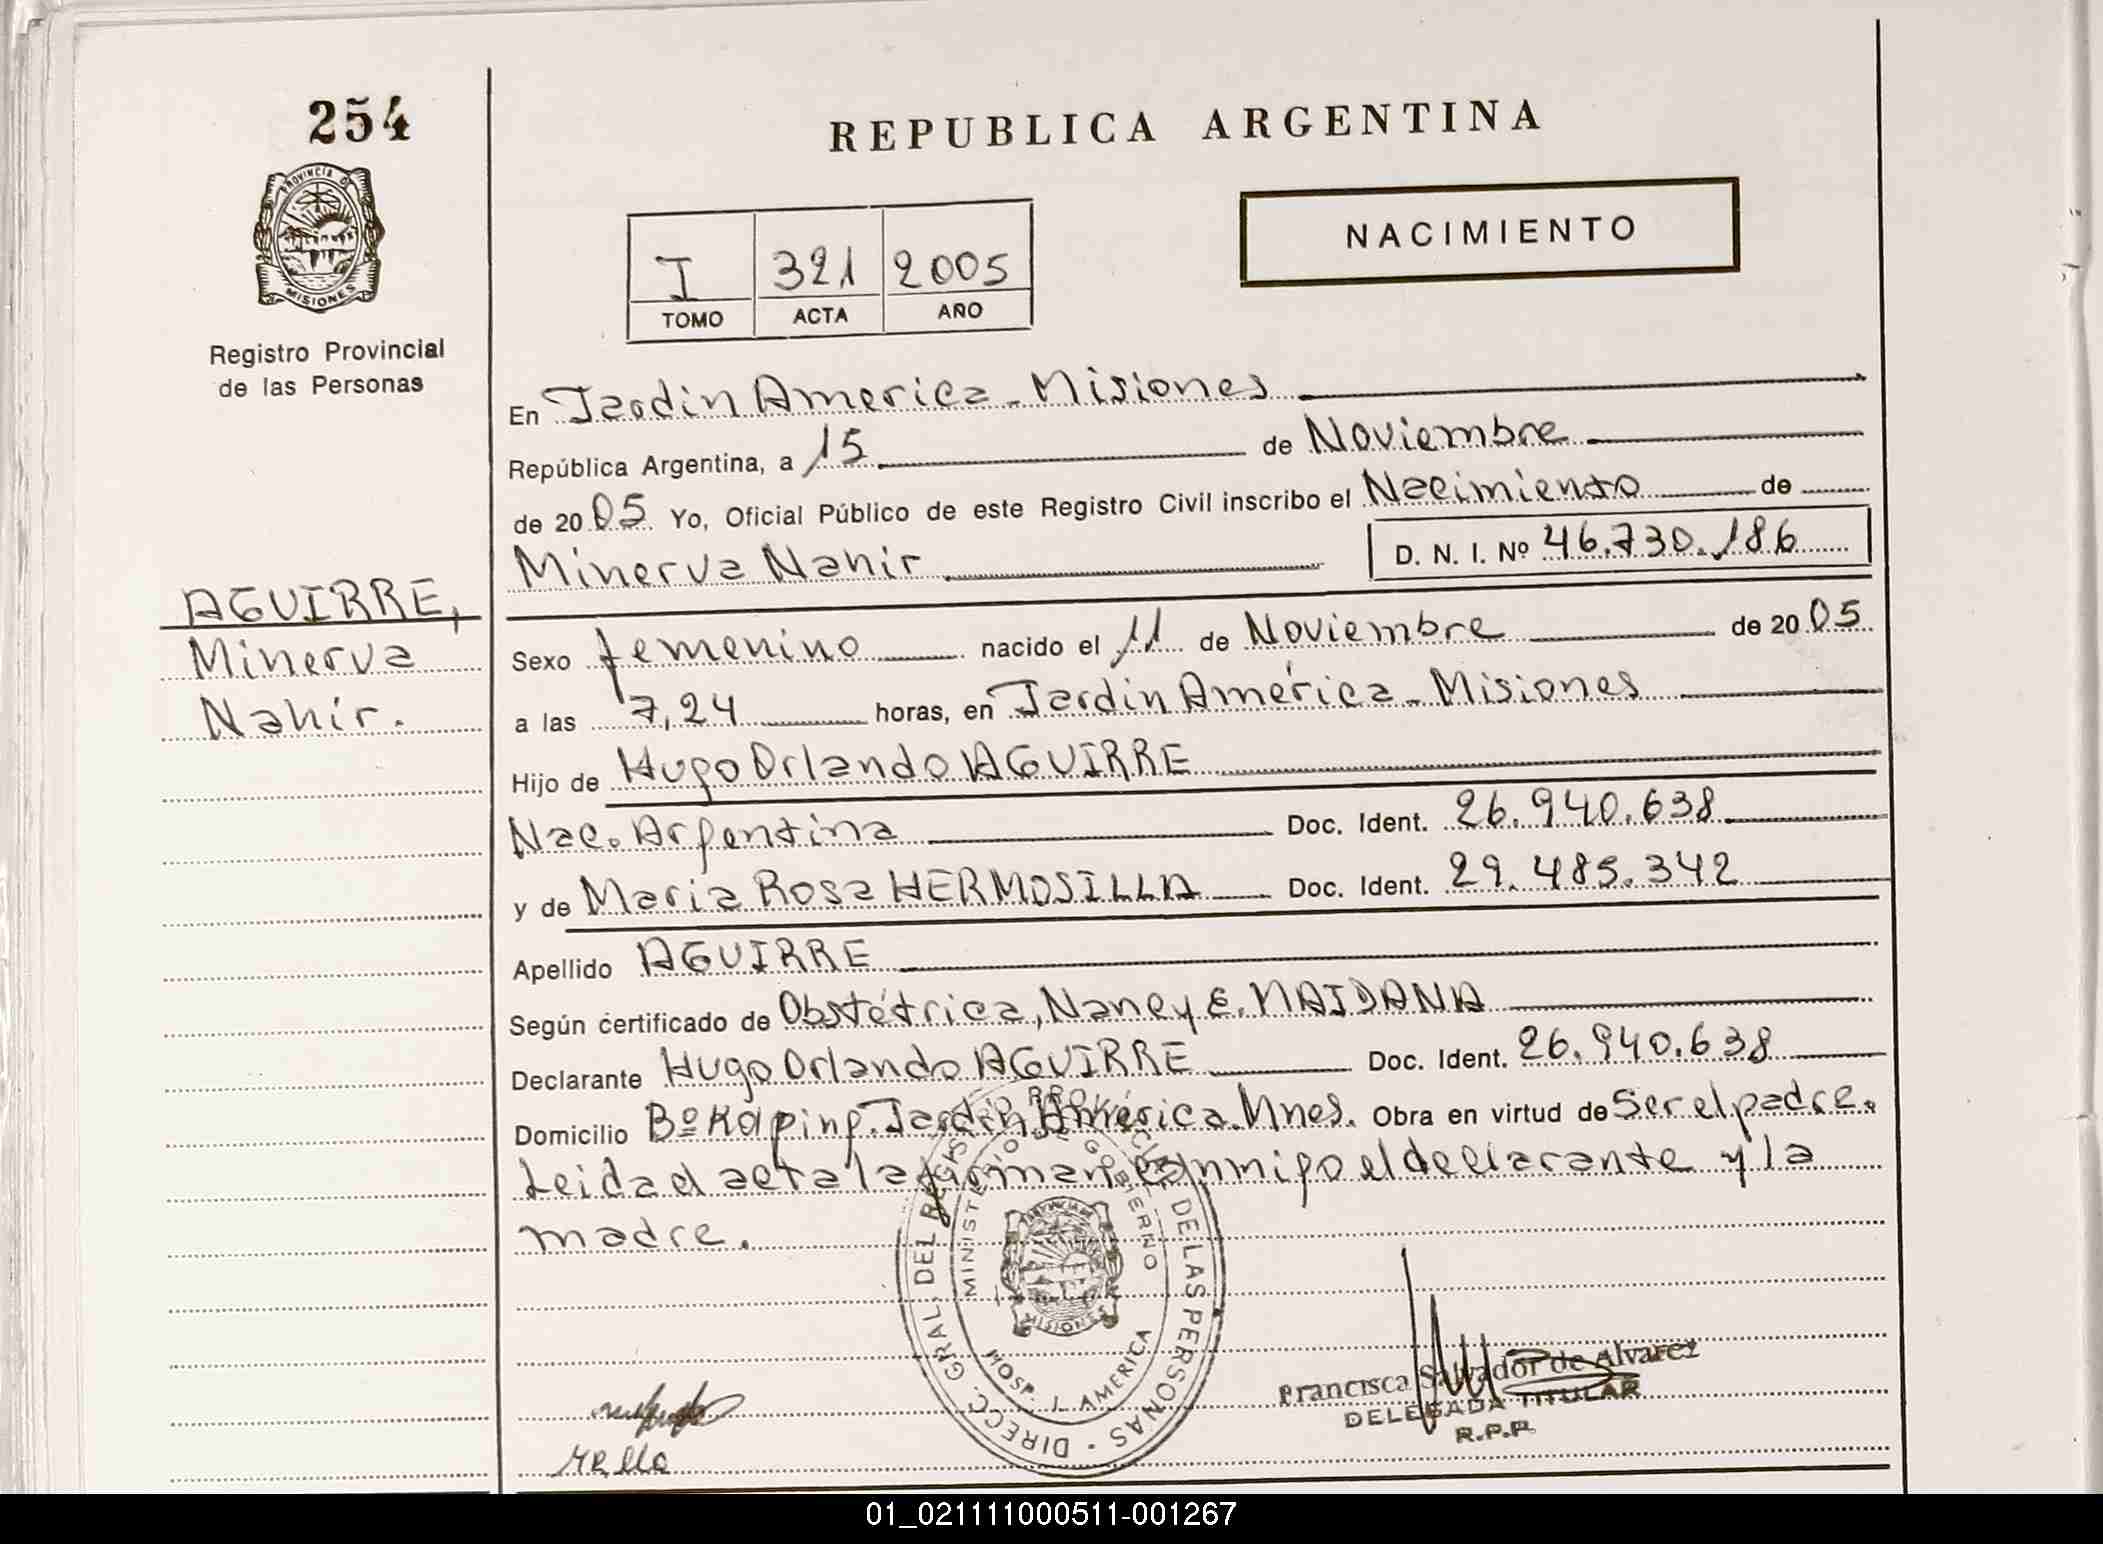 254
PROVINCIA D
MISIONES
Registro Provincial
de las Personas
AGUIRRE,
Minerva
Nahir.
REPUBLICA ARGENTINA
NACIMIENTO
I 321 2005
TOMO ACTA AÑO
En Jardin America - Misiones
República Argentina, a 15 de Noviembre
de 2005 Yo, Oficial Público de este Registro Civil inscribo el Nacimiento de
Minerva Nahir D. N. I. Nº 46.730.186
Sexo femenino nacido el 11 de Noviembre de 2005
a las 7,24 horas, en Jardin América - Misiones
Hijo de Hugo Orlando AGUIRRE
Nac. Argentina Doc. Ident. 26.940.638
y de Maria Rosa HERMOSILLA Doc. Ident. 29.485.342
Apellido AGUIRRE
Según certificado de Obstétrica, Nancy E. MAIDANA
Declarante Hugo Orlando AGUIRRE Doc. Ident. 26.940.638
Domicilio Bº Kaping. Jardin América. Mnes. Obra en virtud de Ser el padre.
Leida el acta la firman conmigo el declarante y la
madre.
DIRECC. GRAL. DEL REGISTRO PROVINCIAL DE LAS PERSONAS
MINISTERIO DE GOBIERNO
MISIONES
HOSP. J. AMERICA
Francisca Salvador de Alvarez
DELEGADA TITULAR
R.P.P.
01_021111000511-001267